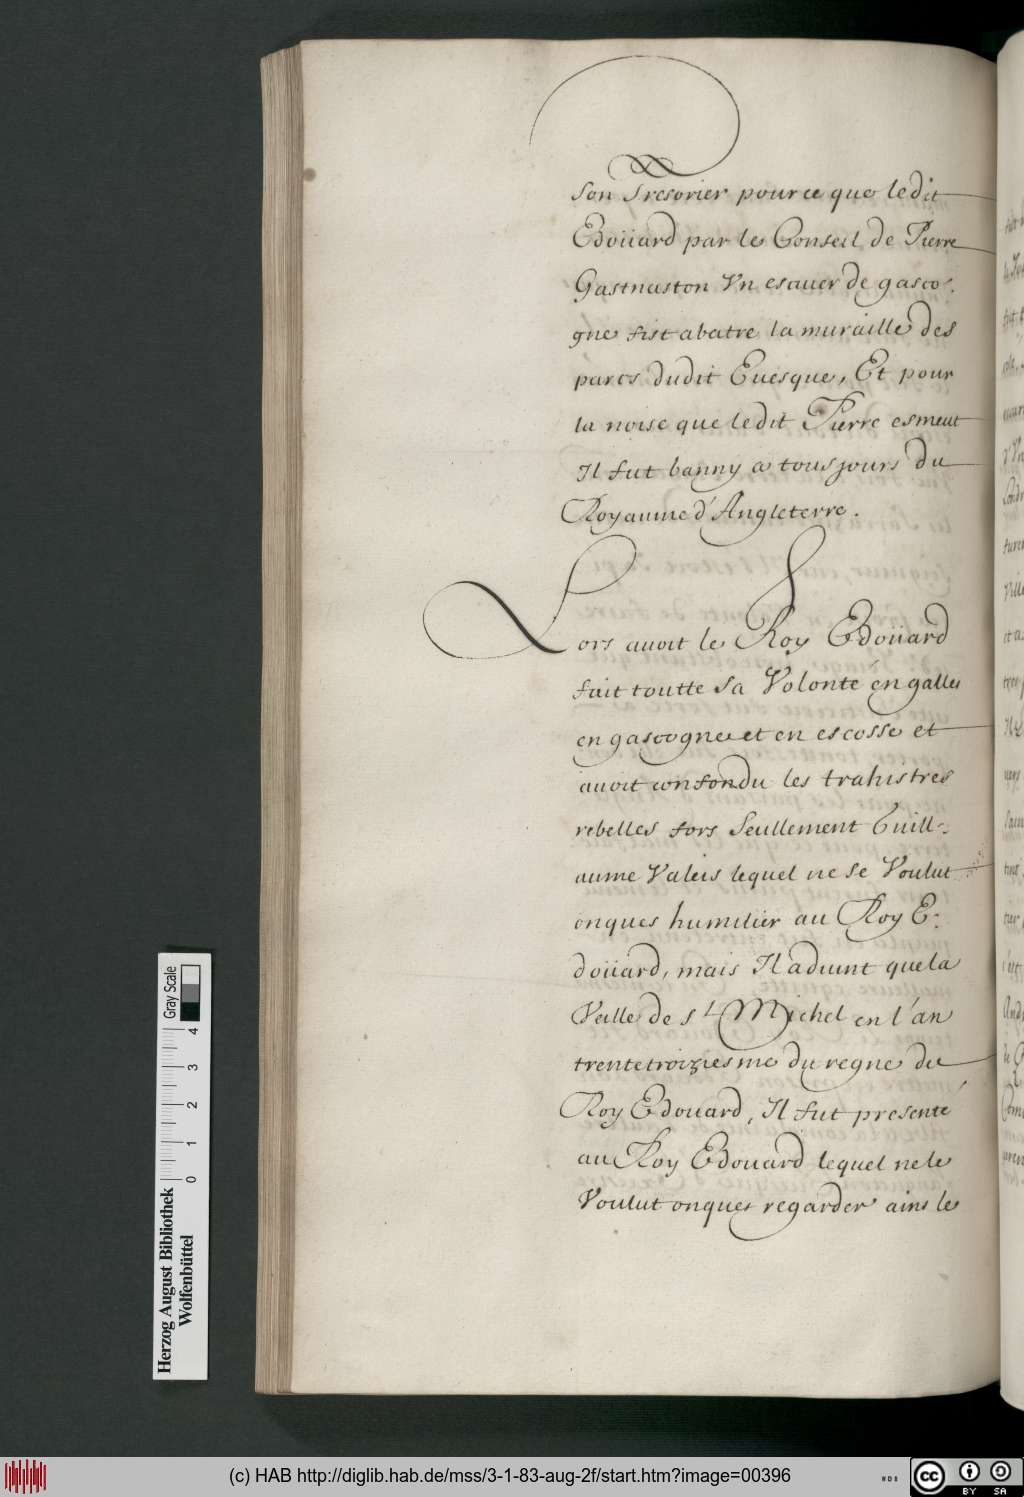 Son Tresorier pource que ledit
Edoüard par le Conseil de Pierre
Gastnuston Vn escuier de gasco-
gne fist abatre la muraille des
parcs dudit Euesque, Et pour
la noise que ledit Pierre esmeut
Il fut banny a tousjours du
Royaume d'Angleterre.
Lors auoit le Roy Edoüard
fait toutte sa Volonté en galles
en gascogne et en escosse et
auoit confondu les trahistres
rebelles fors Seullement Guill-
aume Valeis lequel ne se Voulut
onques humilier au Roy E-
doüard, mais Il aduint que la
Veille de St Michel en l'an
trentetroiziesme du regne du
Roy Edouard, Il fut presenté
au Roy Edouard lequel ne le
Voulut onques regarder ains le
Herzog August Bibliothek
Wolfenbüttel
0 1 2 3 4
Gray Scale
(c) HAB http://diglib.hab.de/mss/3-1-83-aug-2f/start.htm?image=00396
WDB
cc BY SA